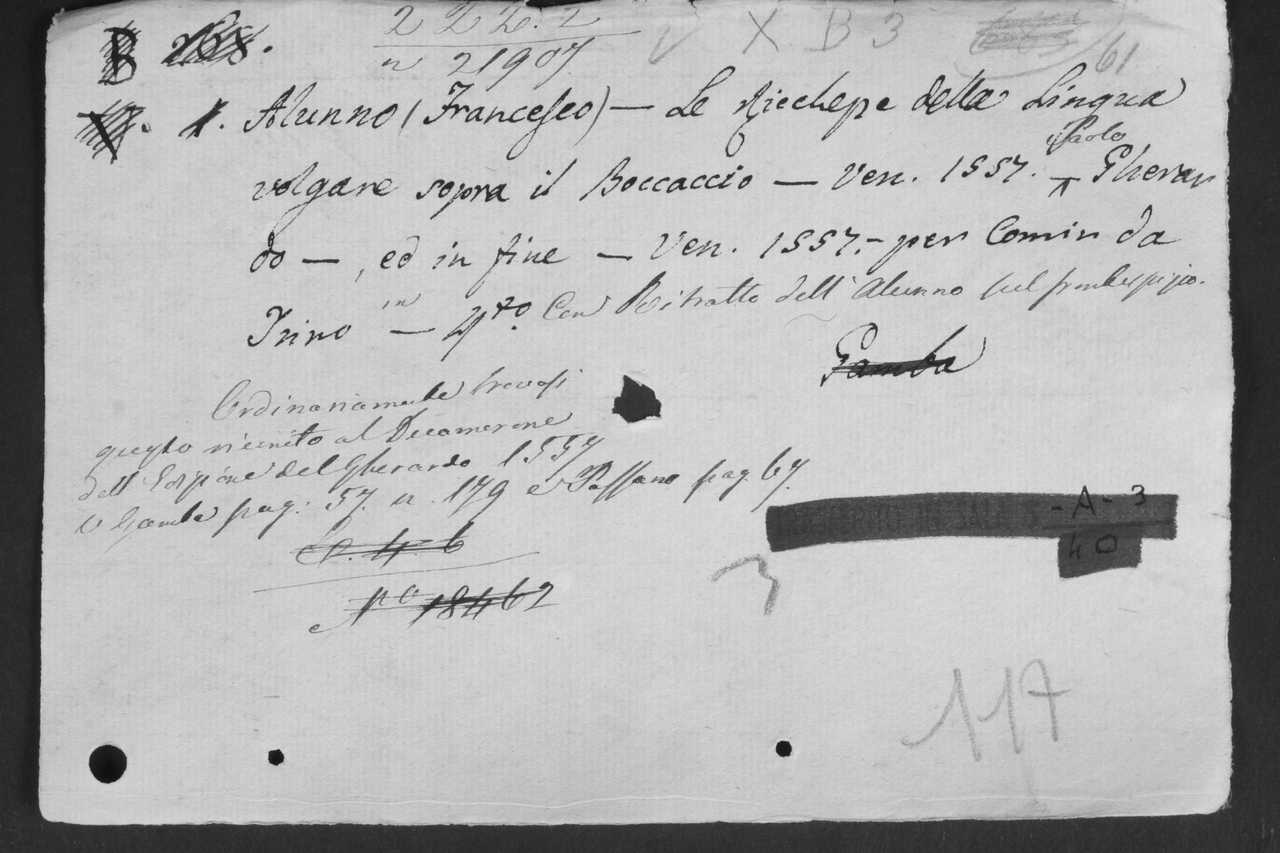 B
222.2
n 21907
V X B 3
61
1. Alunno (Francesco) — Le Ricchezze della Lingua
volgare sopra il Boccaccio — Ven. 1557. — Paolo Gherar
do — , ed in fine — Ven. 1557. — per Comin da
Trino — in 4to. Con Ritratto dell' Alunno sul frontespizio.
Gamba
Ordinariamente trovasi
questo riunito al Decamerone
dell' Edizione del Gherardo 1557
V Gamba pag: 57. n. 179 e Passano pag. 67.
No 18462
TRASFERITO IN SALA - A - 3
40
3
117